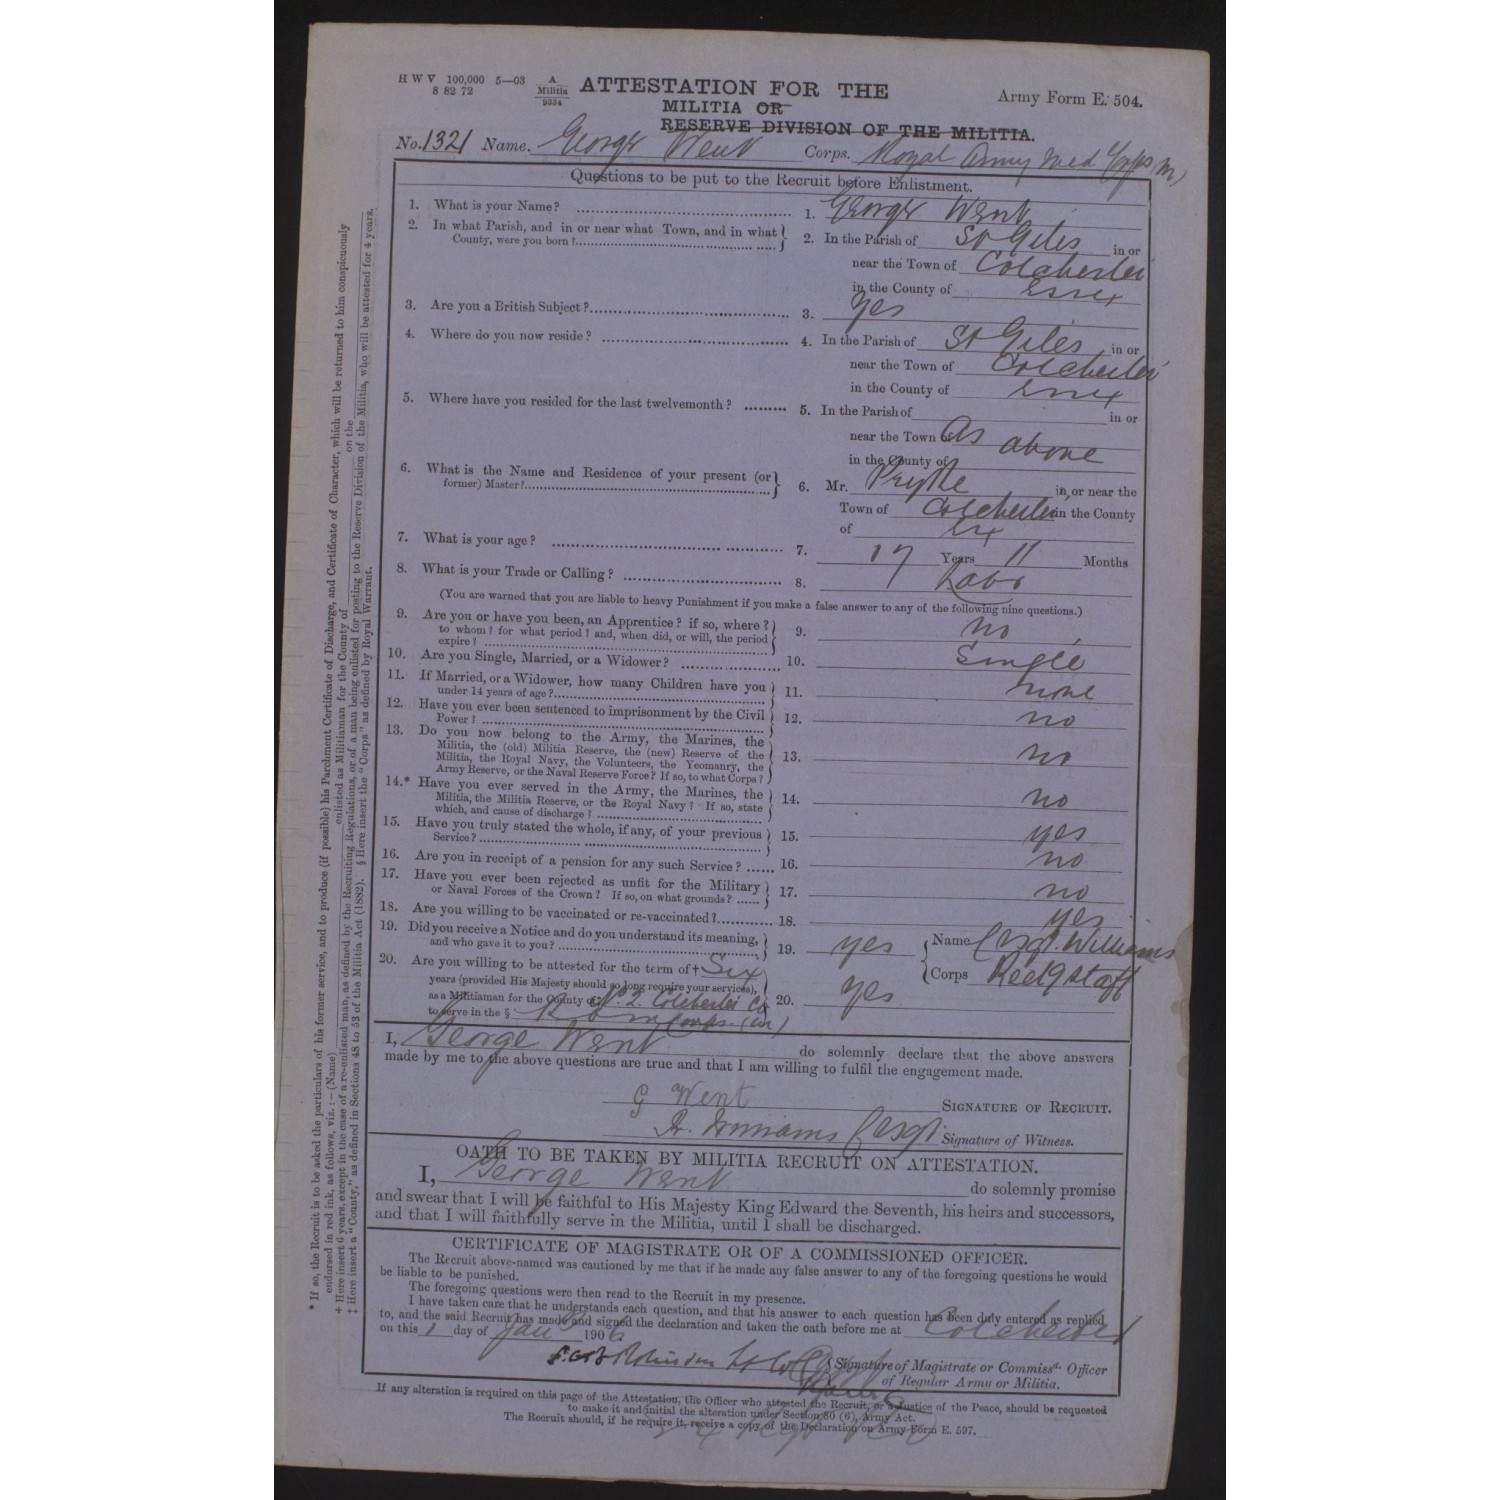 H W V 100,000 5—03
8 82 72
A
Militia
9334
ATTESTATION FOR THE
MILITIA OR
RESERVE DIVISION OF THE MILITIA.
Army Form E. 504.
No. 1321 Name. George Went Corps. Royal Army Med Corps (M)
Questions to be put to the Recruit before Enlistment.
1. What is your Name? 1. George Went
2. In what Parish, and in or near what Town, and in what County, were you born? 2. In the Parish of St Giles in or
near the Town of Colchester
in the County of Essex
3. Are you a British Subject? 3. Yes
4. Where do you now reside? 4. In the Parish of St Giles in or
near the Town of Colchester
in the County of Essex
5. Where have you resided for the last twelvemonth? 5. In the Parish of in or
near the Town of As above
in the County of
6. What is the Name and Residence of your present (or former) Master? 6. Mr. Pryke in or near the
Town of Colchester in the County
of Ex
7. What is your age? 7. 17 Years 11 Months
8. What is your Trade or Calling? 8. Labr
(You are warned that you are liable to heavy Punishment if you make a false answer to any of the following nine questions.)
9. Are you or have you been, an Apprentice? if so, where?
to whom? for what period? and, when did, or will, the period
expire? 9. no
10. Are you Single, Married, or a Widower? 10. Single
11. If Married, or a Widower, how many Children have you
under 14 years of age? 11. none
12. Have you ever been sentenced to imprisonment by the Civil
Power? 12. no
13. Do you now belong to the Army, the Marines, the
Militia, the (old) Militia Reserve, the (new) Reserve of the
Militia, the Royal Navy, the Volunteers, the Yeomanry, the
Army Reserve, or the Naval Reserve Force? If so, to what Corps? 13. no
14.* Have you ever served in the Army, the Marines, the
Militia, the Militia Reserve, or the Royal Navy? If so, state
which, and cause of discharge? 14. no
15. Have you truly stated the whole, if any, of your previous
Service? 15. yes
16. Are you in receipt of a pension for any such Service? 16. no
17. Have you ever been rejected as unfit for the Military
or Naval Forces of the Crown? If so, on what grounds? 17. no
18. Are you willing to be vaccinated or re-vaccinated? 18. yes
19. Did you receive a Notice and do you understand its meaning,
and who gave it to you? 19. yes Name Csgt. Williams
Corps Recg Staff
20. Are you willing to be attested for the term of † Six
years (provided His Majesty should so long require your services),
as a Militiaman for the County of No. 2. Colchester Co 20. yes
to serve in the § R A M Corps (M)
I, George Went do solemnly declare that the above answers
made by me to the above questions are true and that I am willing to fulfil the engagement made.
G Went SIGNATURE OF RECRUIT.
Williams Csgt Signature of Witness.
OATH TO BE TAKEN BY MILITIA RECRUIT ON ATTESTATION.
I, George Went do solemnly promise
and swear that I will be faithful to His Majesty King Edward the Seventh, his heirs and successors,
and that I will faithfully serve in the Militia, until I shall be discharged.
CERTIFICATE OF MAGISTRATE OR OF A COMMISSIONED OFFICER.
The Recruit above-named was cautioned by me that if he made any false answer to any of the foregoing questions he would
be liable to be punished.
The foregoing questions were then read to the Recruit in my presence.
I have taken care that he understands each question, and that his answer to each question has been duly entered as replied
to, and the said Recruit has made and signed the declaration and taken the oath before me at Colchester
on this 1 day of Jany 1906
Robinson Lt Col
Signature of Magistrate or Commissd. Officer
of Regular Army or Militia.
If any alteration is required on this page of the Attestation, the Officer who attested the Recruit, or a Justice of the Peace, should be requested
to make it and initial the alteration under Section 80 (6), Army Act.
The Recruit should, if he require it, receive a copy of the Declaration on Army Form E. 597.
* If so, the Recruit is to be asked the particulars of his former service, and to produce (if possible) his Parchment Certificate of Discharge, and Certificate of Character, which will be returned to him conspicuously
endorsed in red ink, as follows, viz.:—(Name) enlisted as Militiaman for the County of on the
† Here insert 6 years, except in the case of a re-enlisted man, as defined by the Recruiting Regulations, or of a man being enlisted for posting to the Reserve Division of the Militia, who will be attested for 4 years.
‡ Here insert a "County," as defined in Sections 48 to 53 of the Militia Act (1882). § Here insert the "Corps" as defined by Royal Warrant.